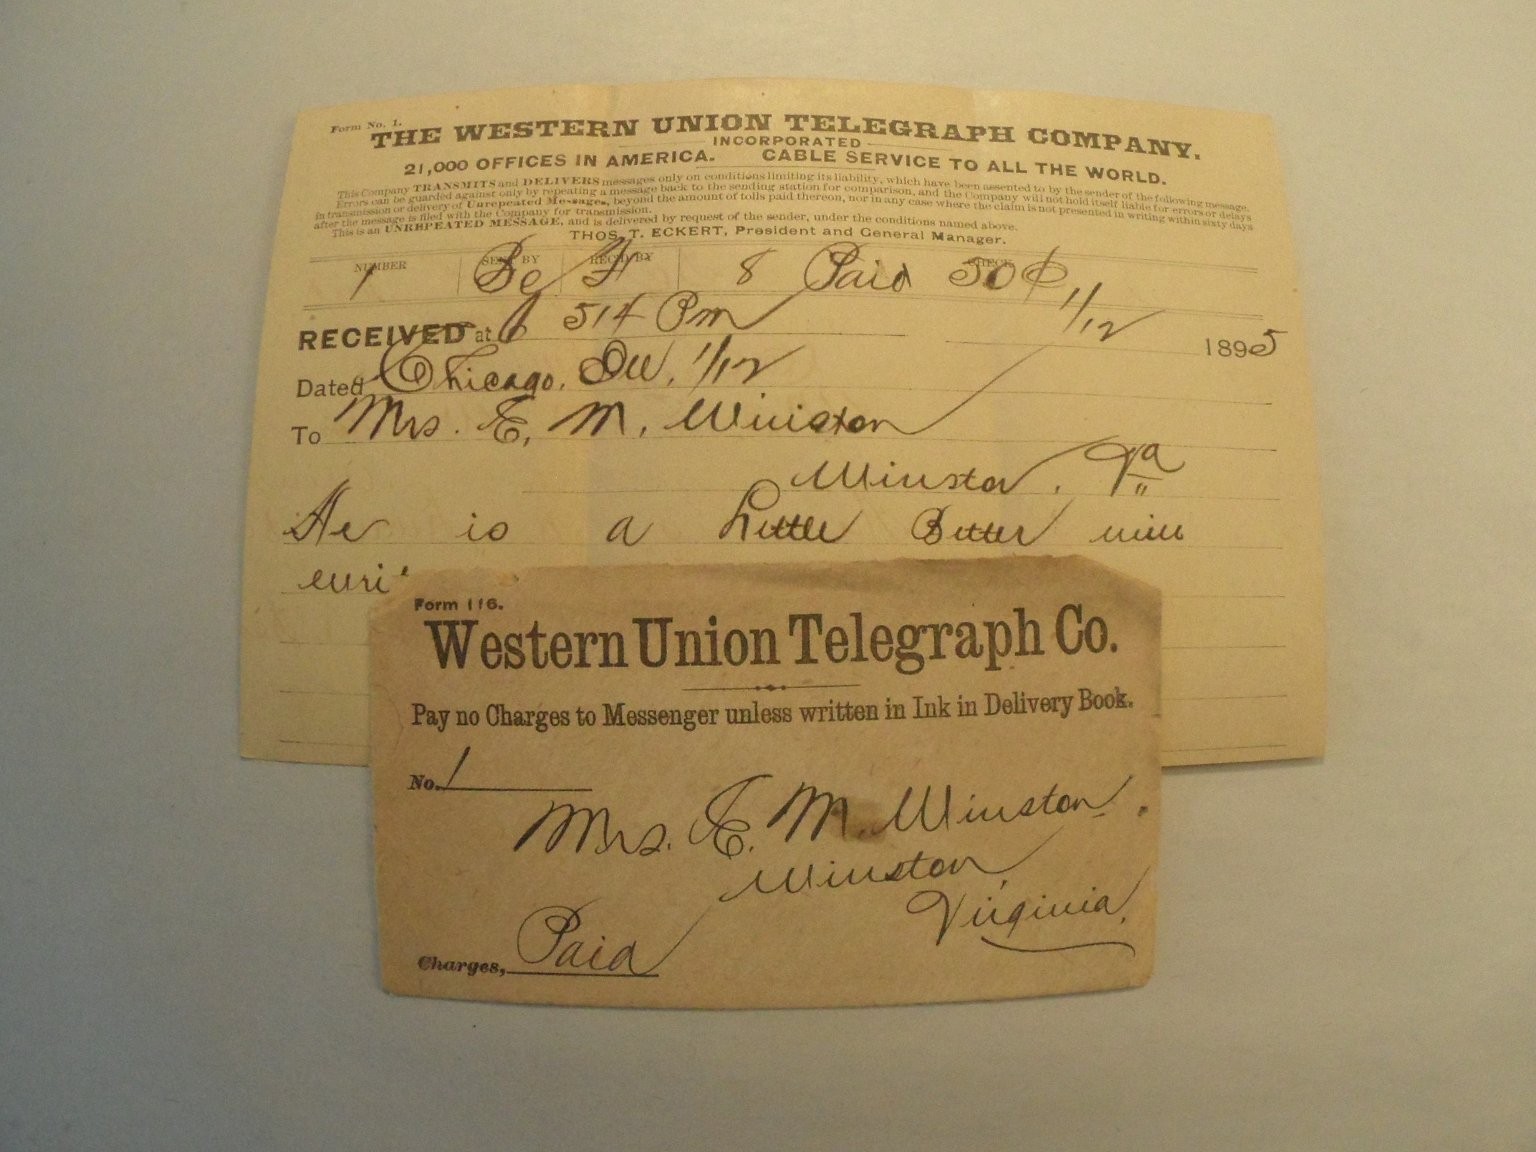 Form No. 1.
THE WESTERN UNION TELEGRAPH COMPANY.
INCORPORATED
21,000 OFFICES IN AMERICA. CABLE SERVICE TO ALL THE WORLD.
This Company TRANSMITS and DELIVERS messages only on conditions limiting its liability, which have been assented to by the sender of the following message.
Errors can be guarded against only by repeating a message back to the sending station for comparison, and the Company will not hold itself liable for errors or delays
in transmission or delivery of Unrepeated Messages, beyond the amount of tolls paid thereon, nor in any case where the claim is not presented in writing within sixty days
after the message is filed with the Company for transmission.
This is an UNREPEATED MESSAGE, and is delivered by request of the sender, under the conditions named above.
THOS. T. ECKERT, President and General Manager.
NUMBER SENT BY REC'D BY CHECK
1 8 Paid 50¢
RECEIVED at 514 Pm 1/12 1895
Dated Chicago, Ill, 1/12
To Mrs. E. M. Winston
Winston, Va
He is a Little Better will
Form 116.
Western Union Telegraph Co.
Pay no Charges to Messenger unless written in Ink in Delivery Book.
No. 1
Mrs. E. M. Winston,
Winston,
Virginia,
Charges, Paid